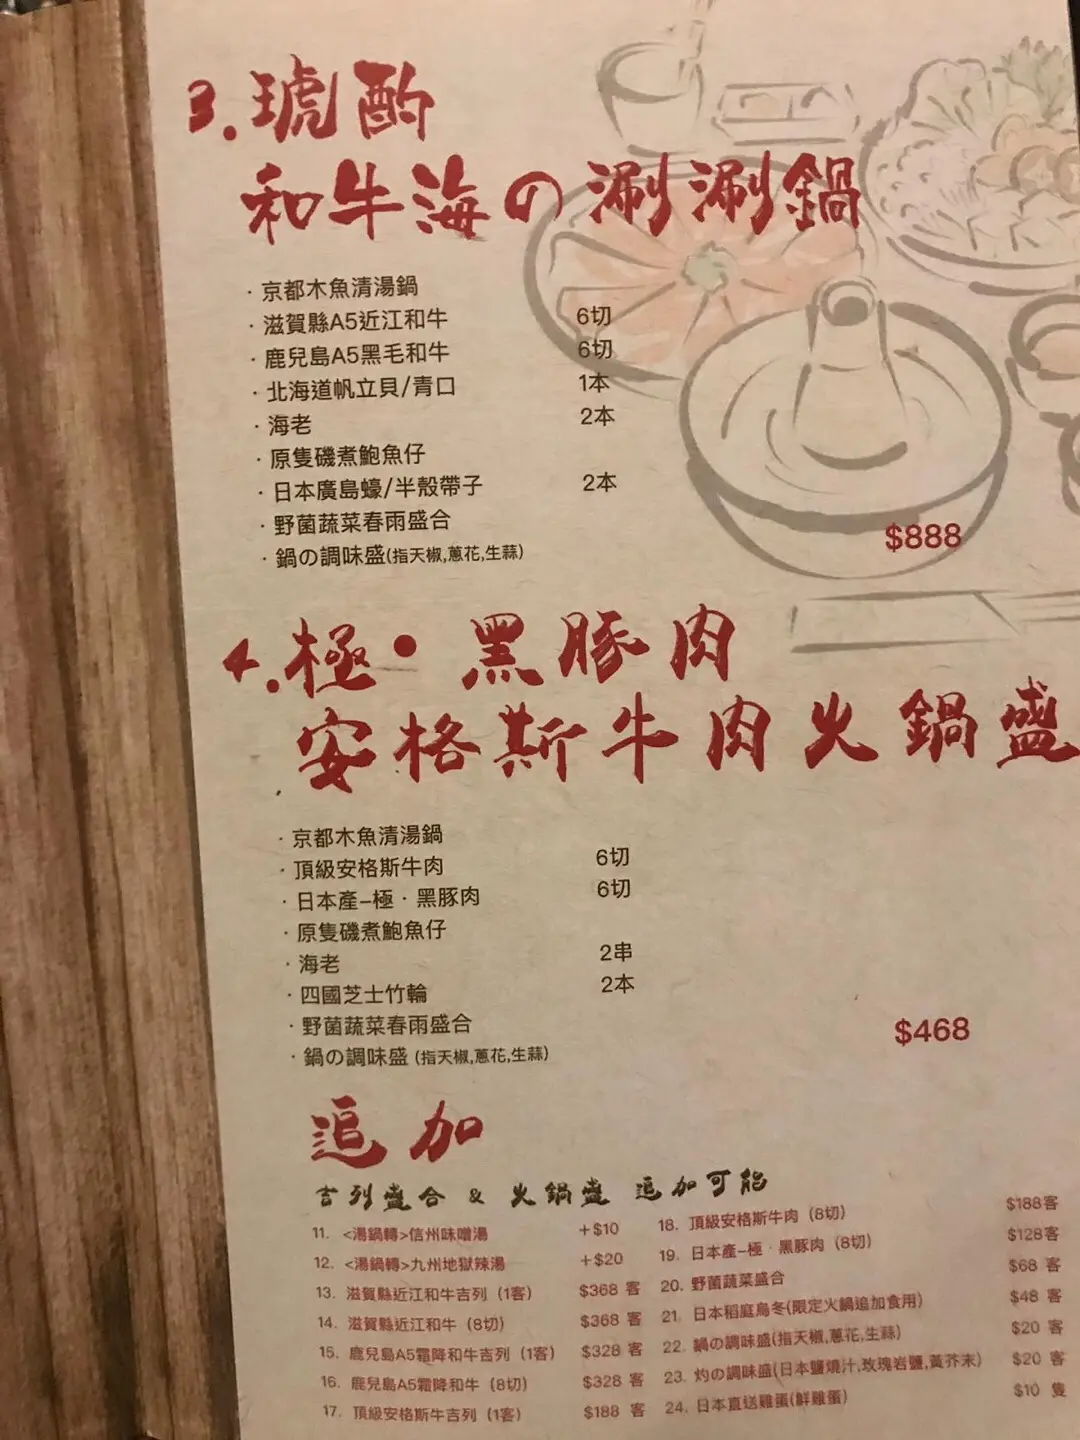 3.琥酌
和牛海の涮涮鍋
·京都木魚清湯鍋
·滋賀縣A5近江和牛 6切
·鹿兒島A5黑毛和牛 6切
·北海道帆立貝/青口 1本
·海老 2本
·原隻磯煮鮑魚仔
·日本廣島蠔/半殼帶子 2本
·野菌蔬菜春雨盛合
·鍋の調味盛(指天椒,蔥花,生蒜)
$888
4.極·黑豚肉
安格斯牛肉火鍋盛
·京都木魚清湯鍋
·頂級安格斯牛肉 6切
·日本產–極·黑豚肉 6切
·原隻磯煮鮑魚仔
·海老 2串
·四國芝士竹輪 2本
·野菌蔬菜春雨盛合
·鍋の調味盛(指天椒,蔥花,生蒜)
$468
追加
吉列盛合 & 火鍋盛 追加可能
11. <湯鍋轉>信州味噌湯 +$10
12. <湯鍋轉>九州地獄辣湯 +$20
13. 滋賀縣近江和牛吉列 (1客) $368 客
14. 滋賀縣近江和牛 (8切) $368 客
15. 鹿兒島A5霜降和牛吉列 (1客) $328 客
16. 鹿兒島A5霜降和牛 (8切) $328 客
17. 頂級安格斯牛吉列 (1客) $188 客
18. 頂級安格斯牛肉 (8切) $188客
19. 日本產–極·黑豚肉 (8切) $128客
20. 野菌蔬菜盛合 $68 客
21. 日本稻庭烏冬(限定火鍋追加食用) $48 客
22. 鍋の調味盛(指天椒,蔥花,生蒜) $20 客
23. 灼の調味盛(日本鹽燒汁,玫瑰岩鹽,黃芥末) $20 客
24. 日本直送雞蛋(鮮雞蛋) $10 隻